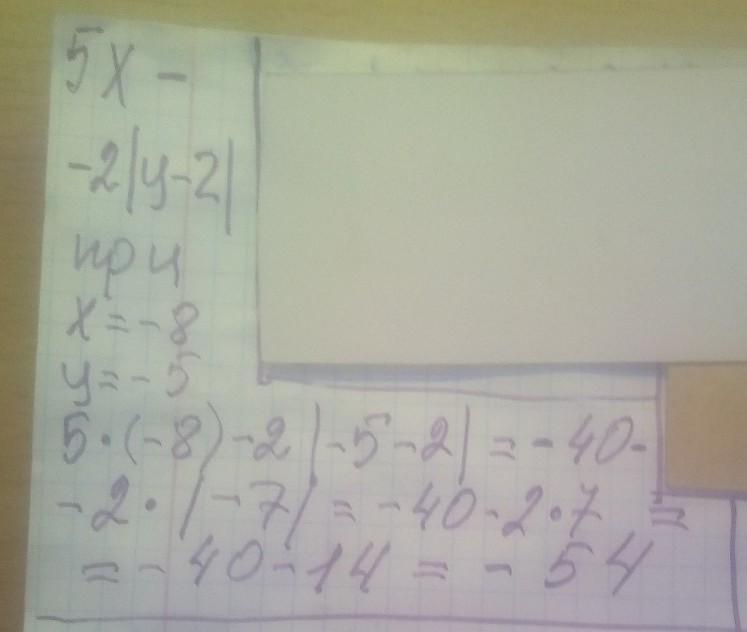 5х -
-2|у-2|
при
х=-8
у=-5
5·(-8)-2|-5-2|=-40-
-2·|-7|=-40-2·7=
=-40-14=-54